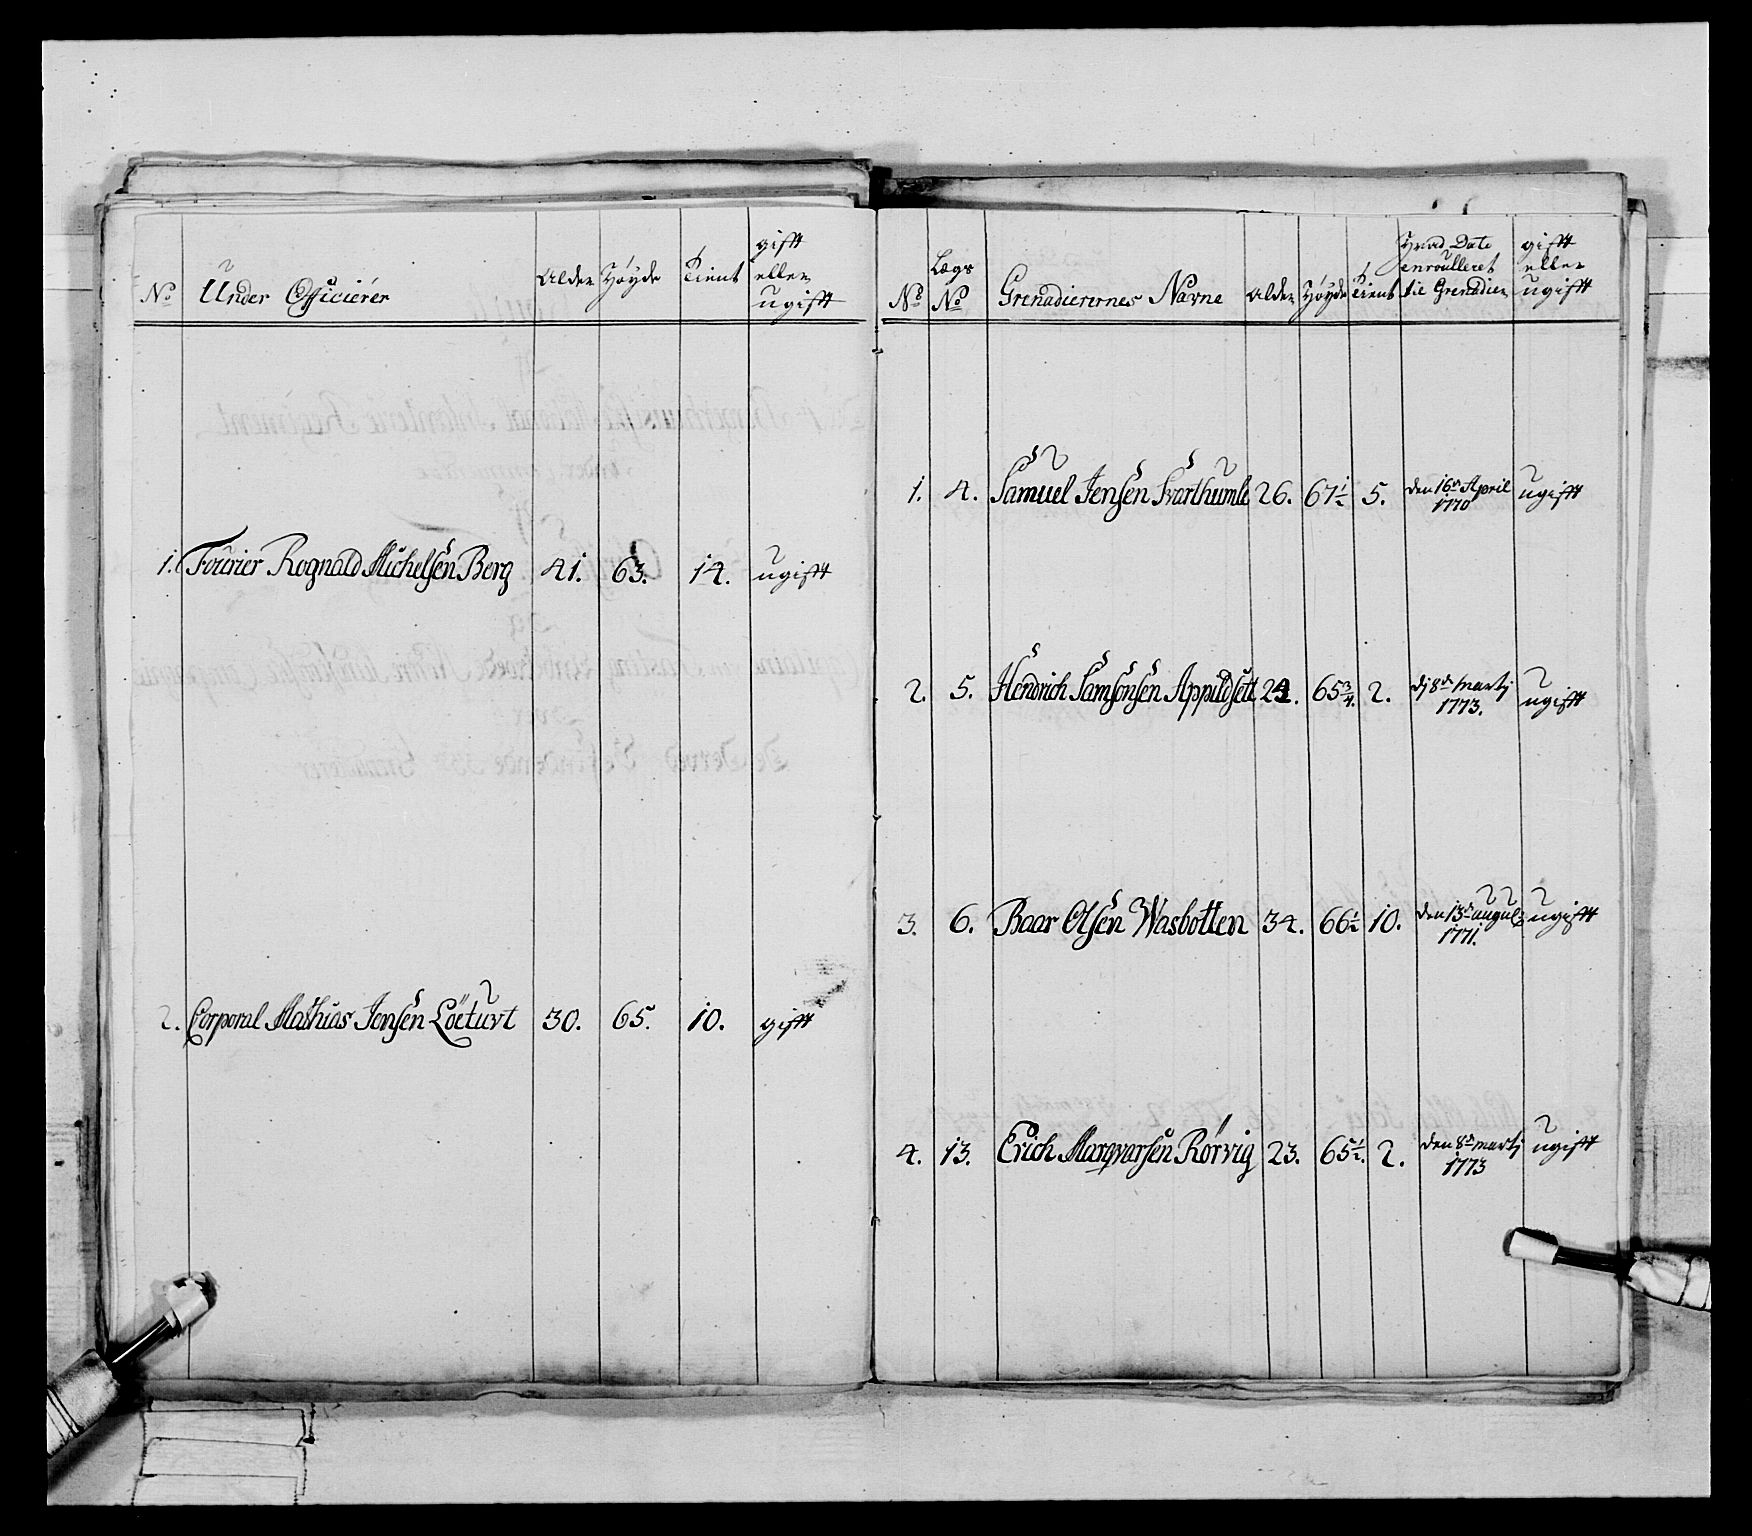 No Under Officierer Alder Høyde tient gift eller ugift
1. Fourier Rognald Michelsen Berg 41. 63. 14. ugift
2. Corporal Mathias Jensen Löeturt 30. 65. 10. gift
No Lægs No Grenaderernes Navne Alder Høyde tient Hvad Dato enroulleret til Grenadier gift eller ugift
1. 4. Samuel Jensen Svarthumle 26. 67½ 5. den 16de April 1770 ugift
2. 5. Hendrich Samsonsen Appildsett 24. 65¾. 2. dj 8de Martj 1773. ugift
3. 6. Baar Olsen Wasbotten 34. 66½ 10. den 13de august 1771. ugift
4. 13. Erich Marqvarsen Rørvig 23. 65½. 2. den 8de martj 1773 ugift